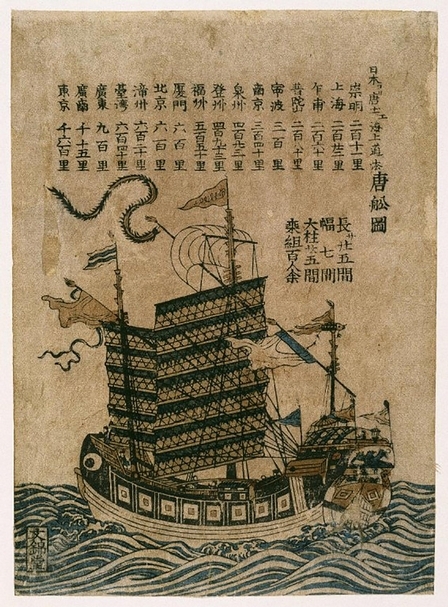 日本ヨリ唐土エ海上道法
唐舩圖
崇明 二百十一里
上海 二百廿二里
乍甫 二百六十里
普陀山 二百八十里
寧波 三百里
南京 三百四十里
泉州 里
登州 四百九十三里
福州 五百五十里
厦門 六百里
北京 六百里
漳州 六百二十里
臺湾 六百四十里
廣東 九百里
廣南 千十五里
東京 千六百里
長サ廿五間
幅七間
大柱廿五間
乗組百人余
文錦堂